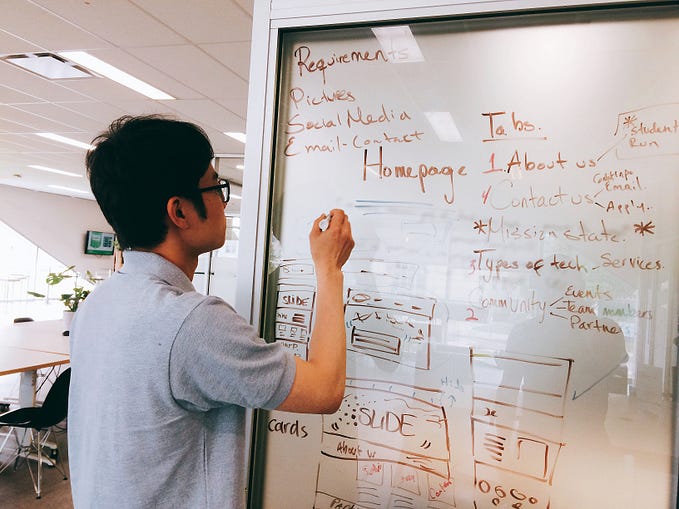 Requirements
Pictures
Social Media
Email-Contact
Homepage
Tabs.
1. About us
* Student
Run
4 Contact us
Email.
Apply.
* Mission State. *
3 Types of tech Services.
2 Community
Events
Team members
Partners
SLIDE
SLIDE
About
cards